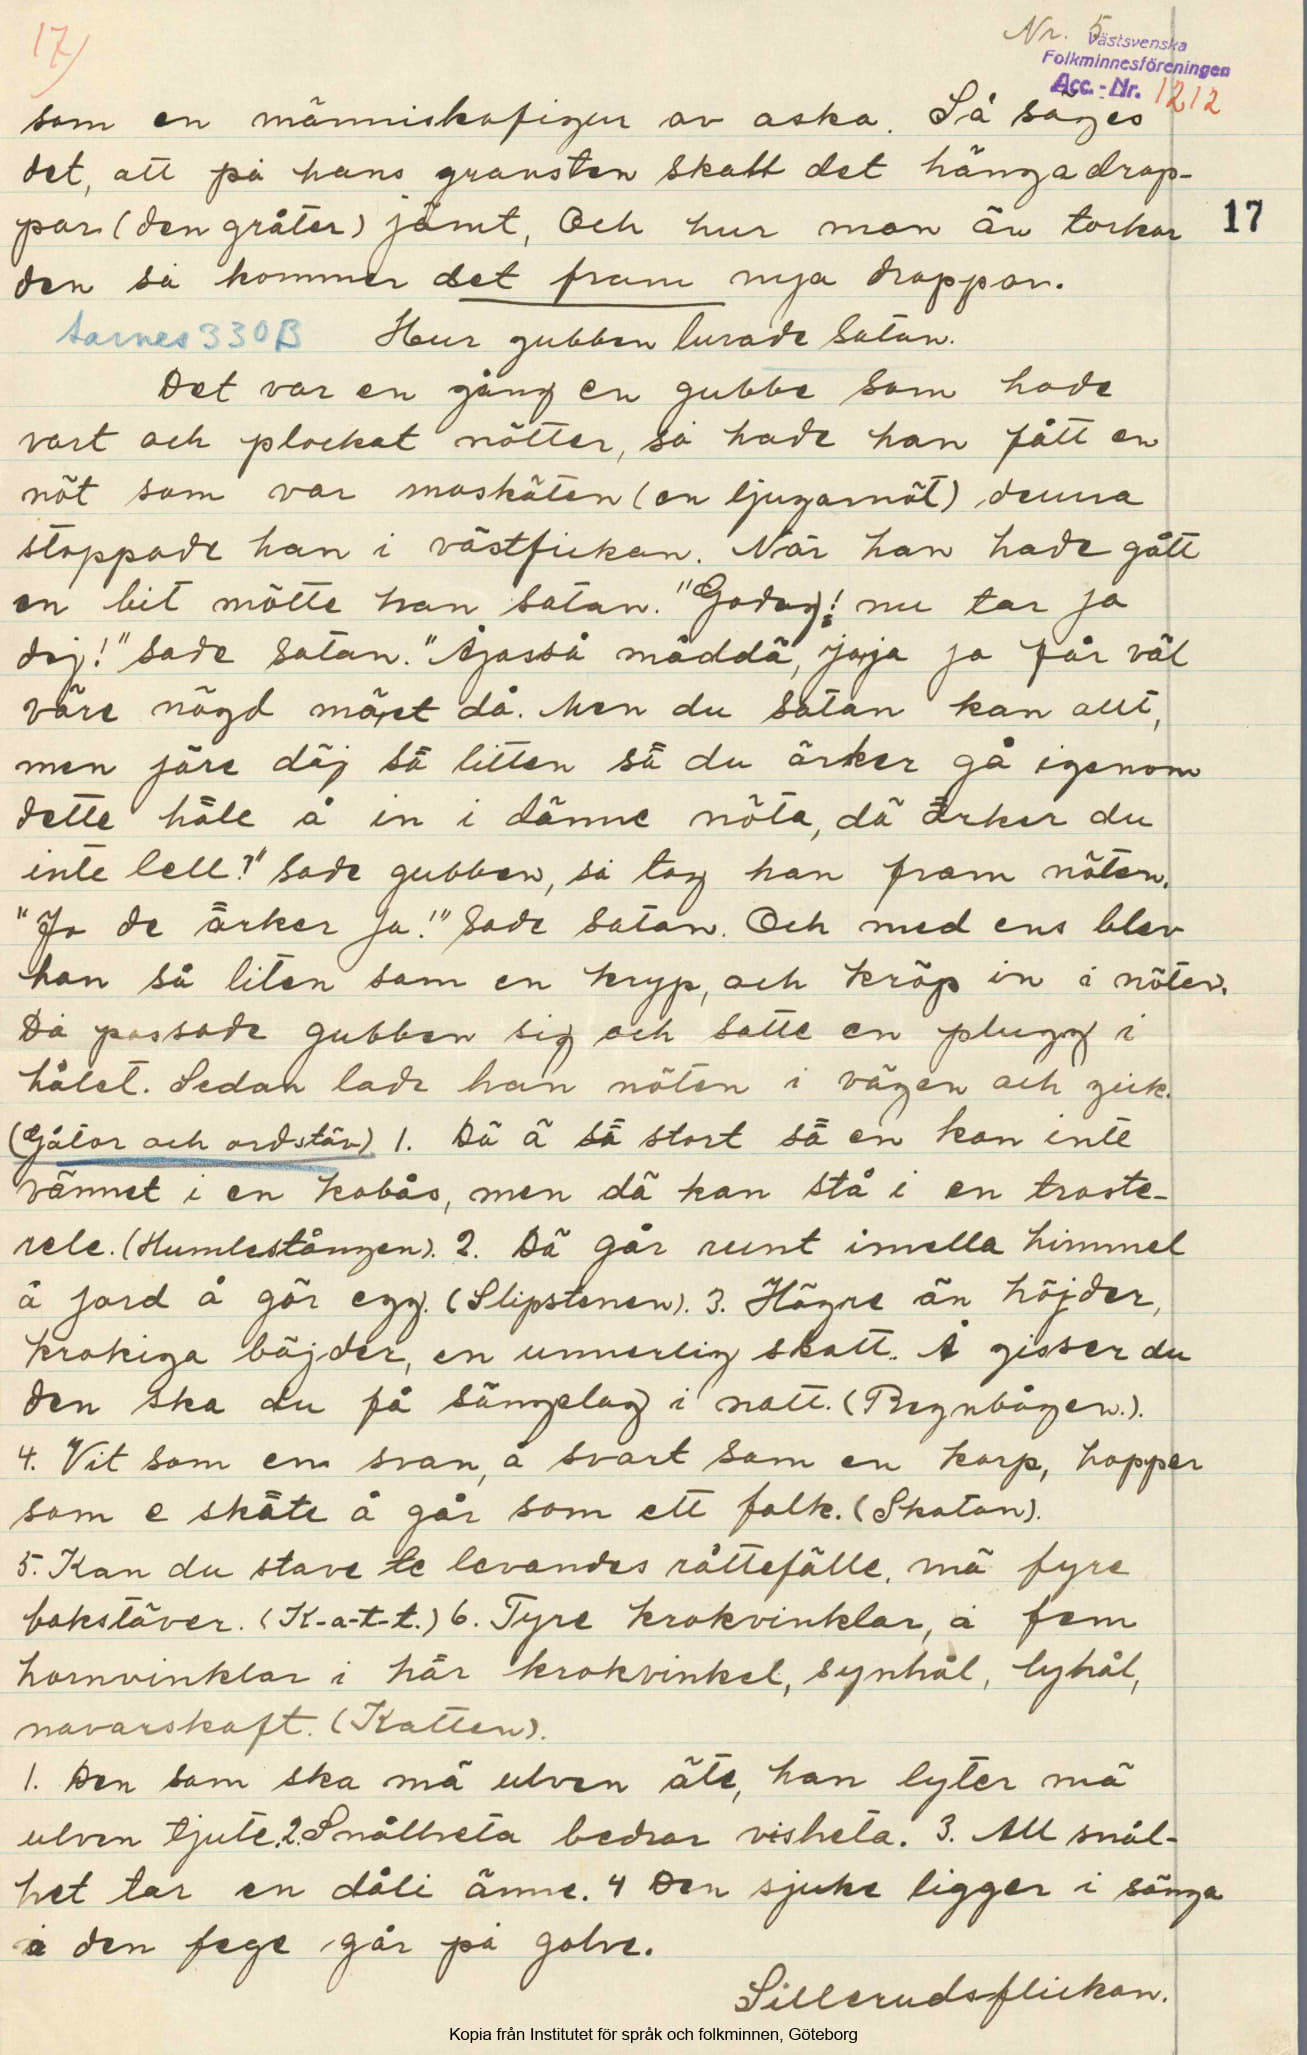 17)
Nr. 5
Västsvenska
Folkminnesföreningen
Acc.-Nr. 1212
som en människofigur av aska. Så säges
det, att på hans gravsten skall det hänga drop-
par (den gråter) jämt, Och hur man än torkar
17
den så kommer det fram nya droppar.
Aarnes 330B Hur gubben lurade Satan.
Det var en gång en gubbe som hade
vart och plockat nötter, så hade han fått en
nöt som var maskäten (en ljugarnöt) denna
stoppade han i västfickan. När han hade gått
en bit mötte han satan. "Godag! nu tar ja
dej!" sade satan. "Åjasså mäddä, jaja ja får väl
väre nögd mäet då. Men du satan kan allt,
men jöre däj så litten så du ärker gå igenom
dette håle å in i dänne nöta, dä ärker du
inte lell?" sade gubben, så tog han fram nöten.
"Jo de ärker ja!" sade satan. Och med ens blev
han så liten som en kryp, och kröp in i nöten.
Då passade gubben sig och satte en plugg i
hålet. Sedan lade han nöten i vägen och gick.
(Gåtor och ordstäv) 1. Dä ä så stort så en kan inte
vännet i en kobås, men dä kan stå i en traste-
rele. (Humlestången). 2. Dä går runt imella himmel
å jord å gör egg. (Slipstenen). 3. Högre än höjder,
krokiga böjder, en unnerlig skatt. Å gisser du
den ska du få sängelag i natt. (Regnbågen.).
4. Vit som en svan, å svart som en korp, hopper
som e skäte å går som ett folk. (Skatan).
5. Kan du stave te levandes råttefälle, mä fyre
bokstäver. (K-a-t-t.) 6. Fyre krokvinklar, å fem
hornvinklar i här krokvinkel, synhål, lyhål,
navarskaft. (Katten).
1. Den som ska mä ulven äte, han lyter mä
ulven tjute. 2. Snålheta bedrar visheta. 3. All snål-
het tar en dåli änne. 4 Den sjuke ligger i sänga
å den fege går på golve.
Sillerudsflickan.
Kopia från Institutet för språk och folkminnen, Göteborg